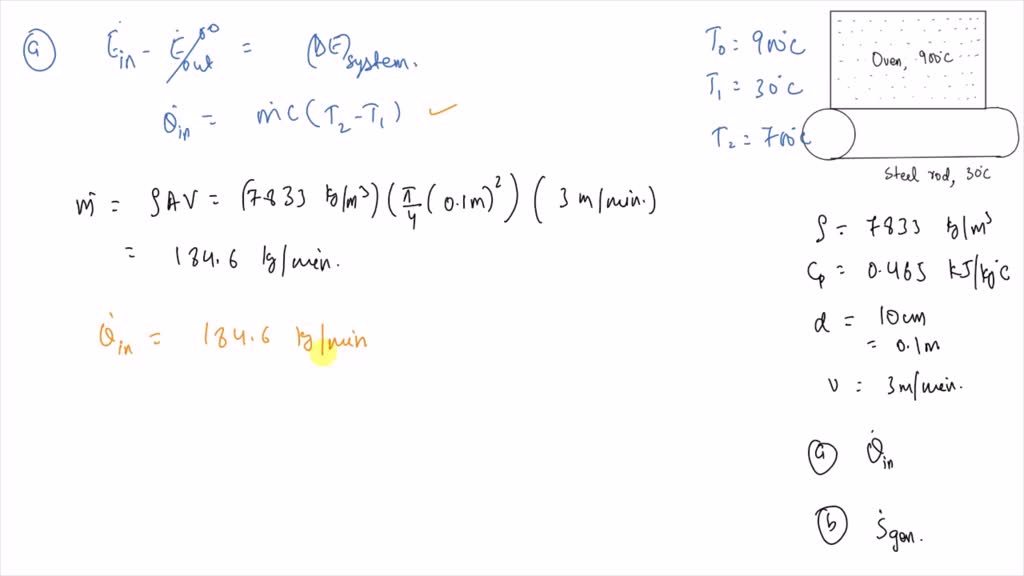 (a) Ėin - Ėout→0 = (ΔE)system.
Q̇in = ṁC(T2-T1) ✓
ṁ = ρAV = (7833 kg/m³)(π/4(0.1m)²)(3m/min.)
= 184.6 kg/min.
Q̇in = 184.6 kg/min
T0 = 900°C
T1 = 30°C
T2 = 700°C
Oven, 900°C
Steel rod, 30°C
ρ = 7833 kg/m³
Cp = 0.465 kJ/kg°C
d = 10cm
= 0.1m
v = 3m/min.
(a) Q̇in
(b) Ṡgen.